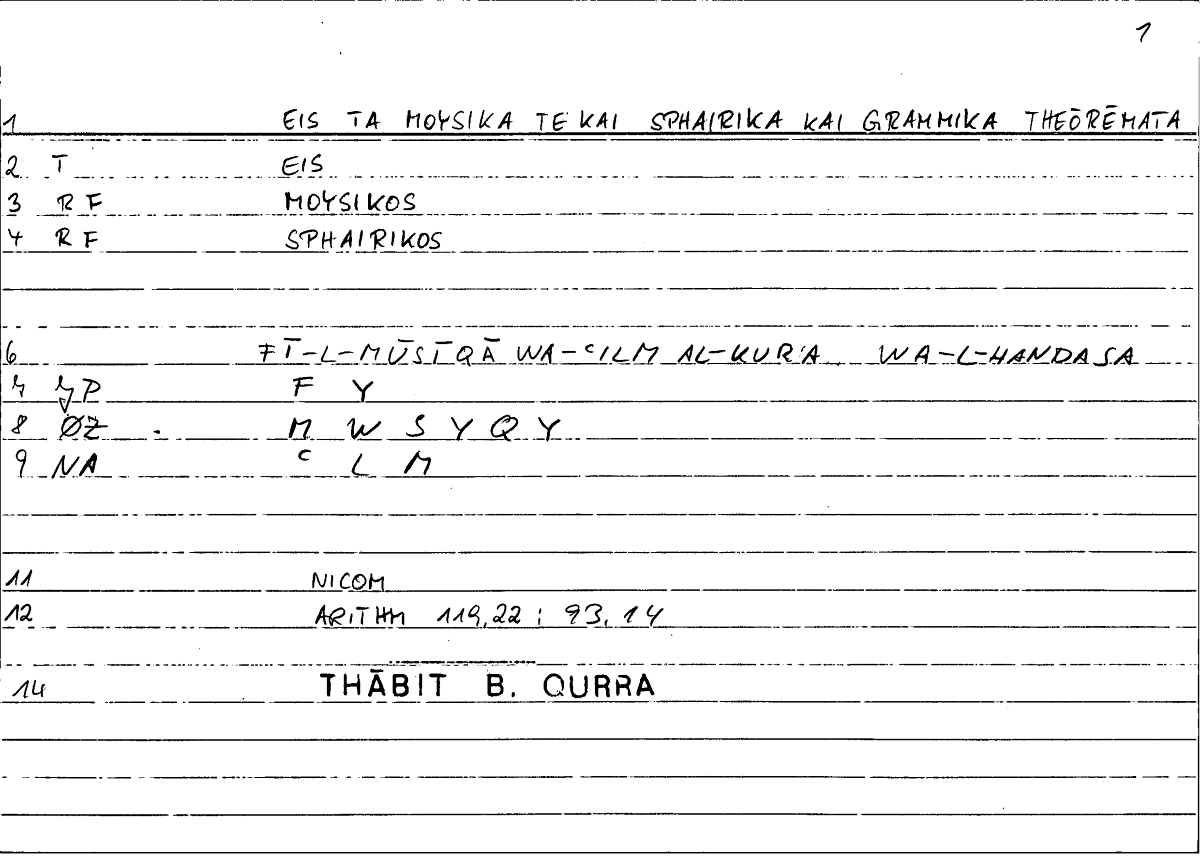 1
1 EIS TA MOYSIKA TE KAI SPHAIRIKA KAI GRAMMIKA THEŌRĒMATA
2 T EIS
3 RF MOYSIKOS
4 RF SPHAIRIKOS
6 FĪ-L-MŪSĪQĀ WA-ʿILM AL-KURA WA-L-HANDASA
7 P F Y
8 ØZ M W S Y Q Y
9 NA ʿ L M
11 NICOM
12 ARITHM 119,22 ; 93,14
14 THĀBIT B. QURRA